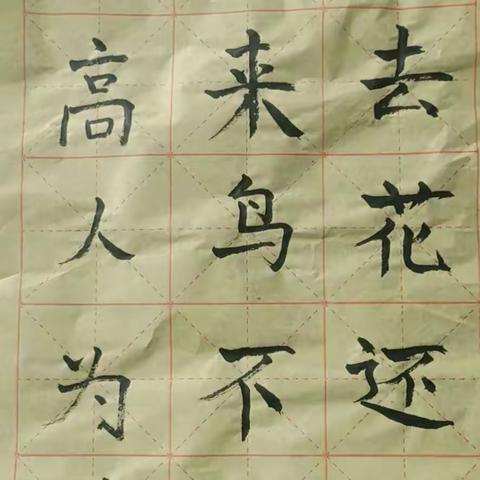 去花还
来鸟不
高人为